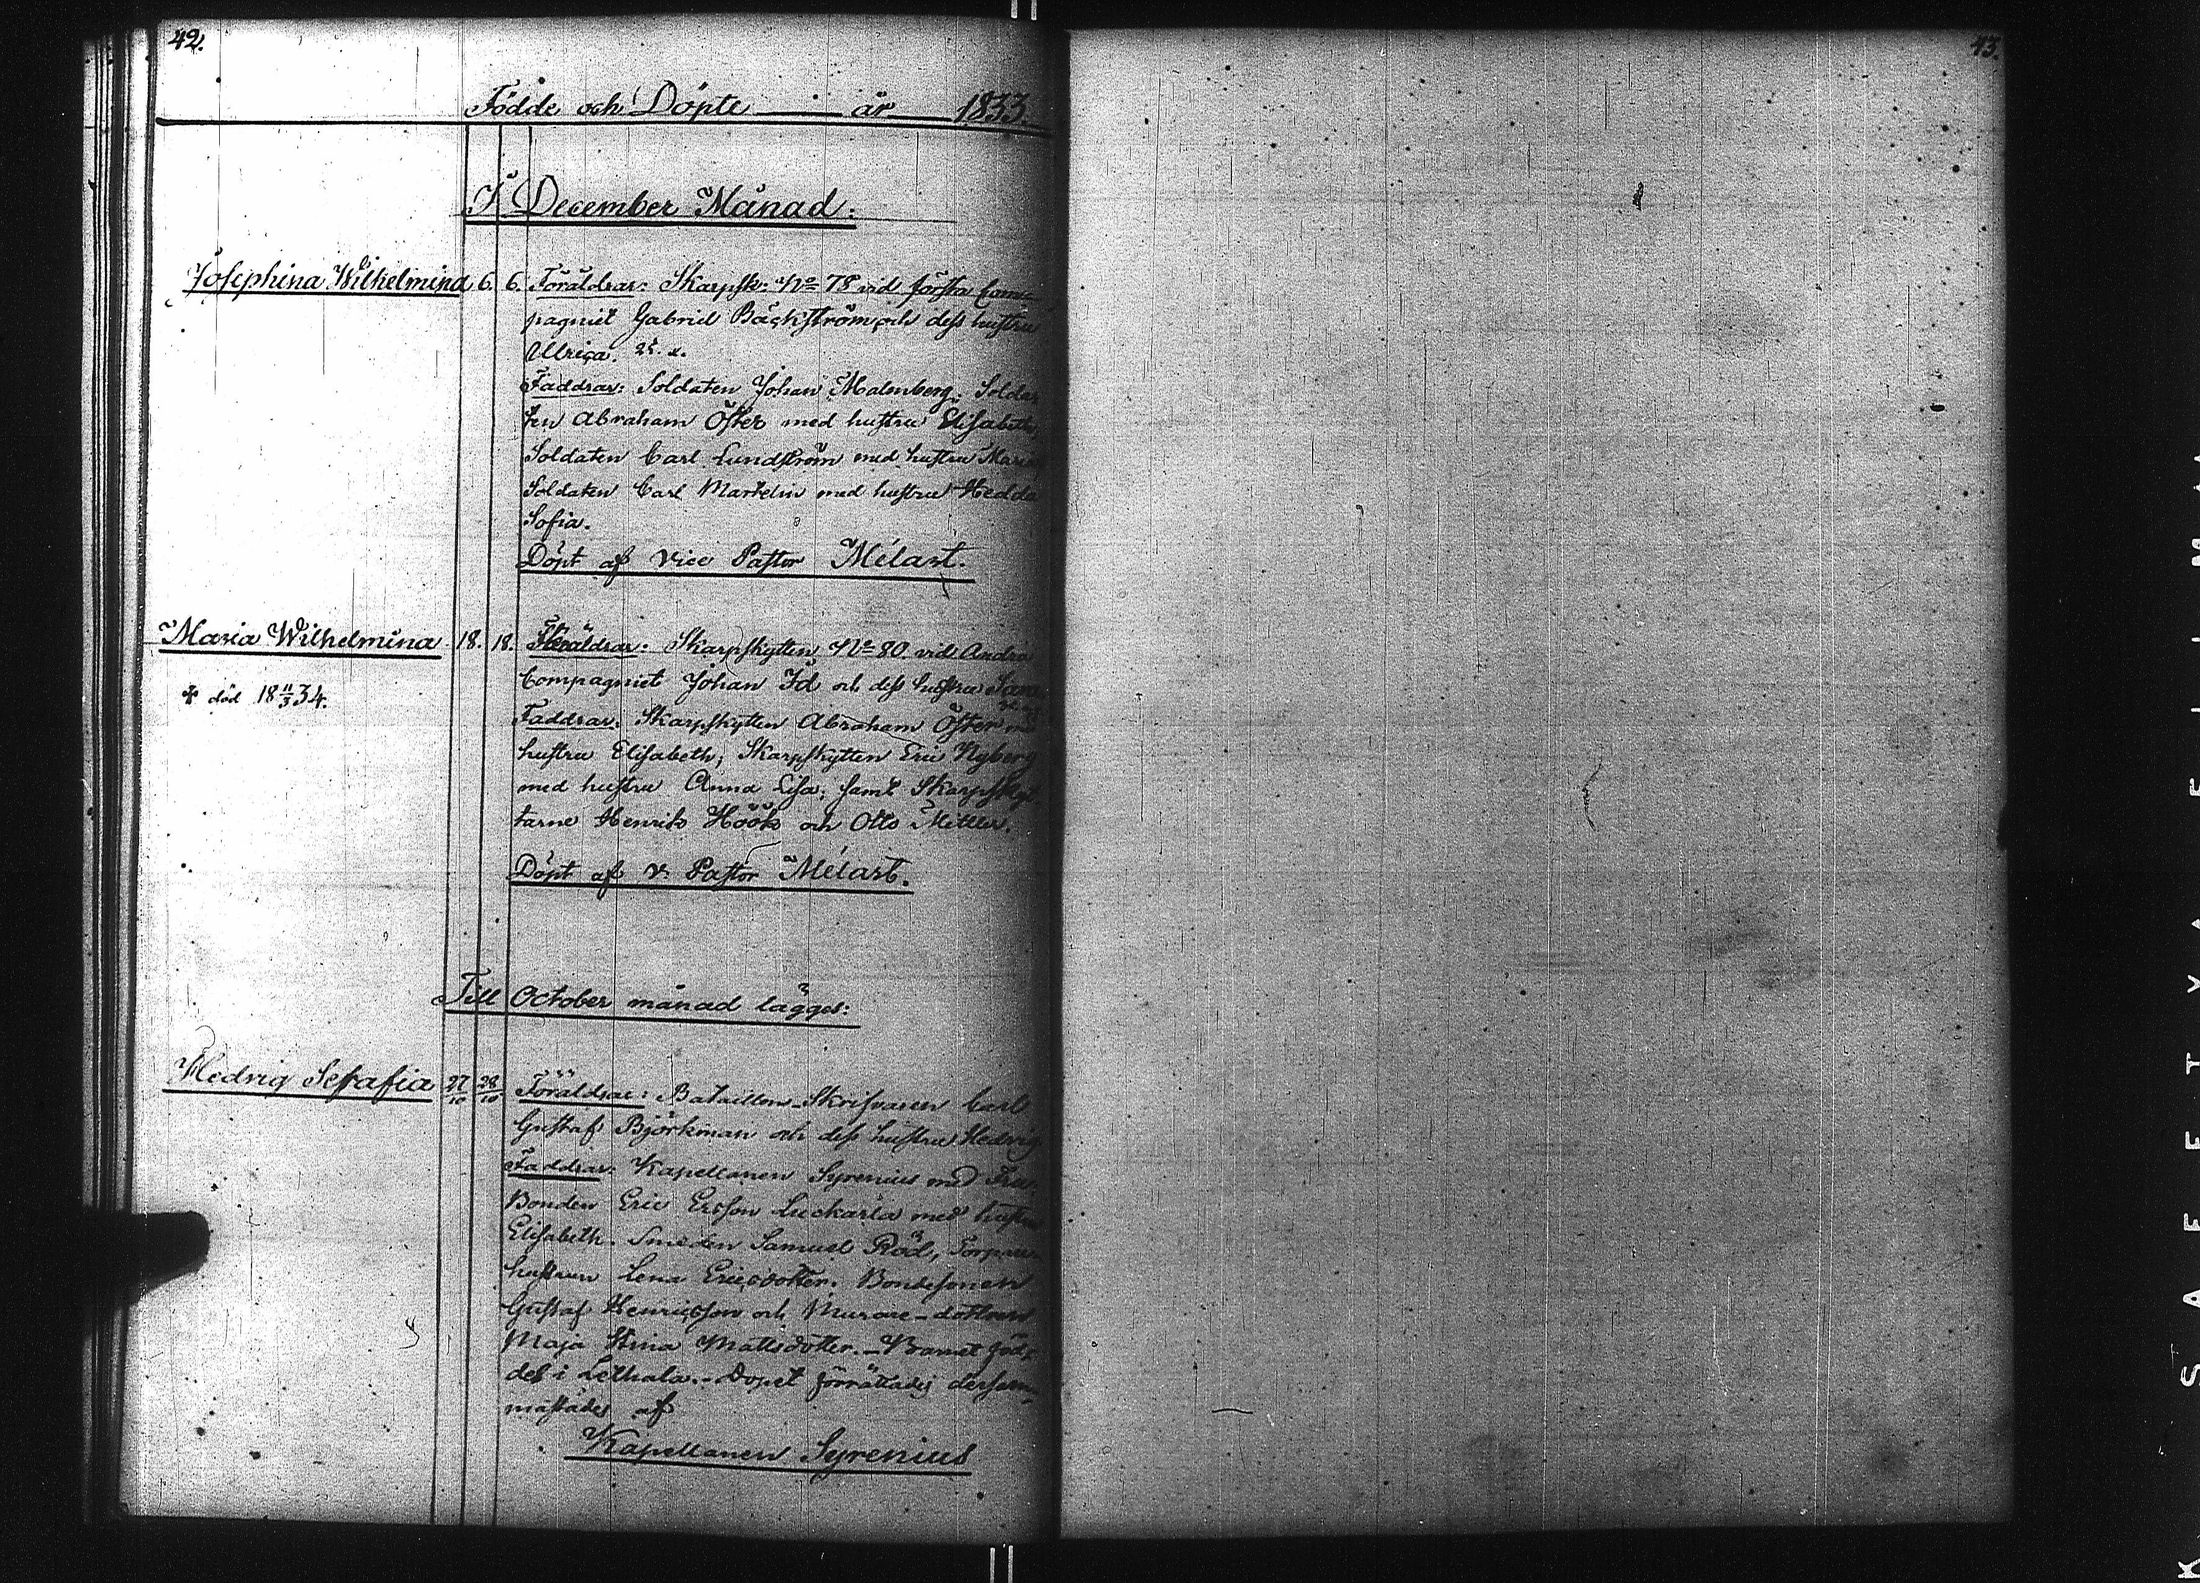 42.
43.
Födde och Döpte — år — 1833.
I December Månad:
Josephina Wilhelmina 6. 6. Föräldrar: Skarpsk: No 78 vid första Com-
pagniet Gabriel Bäckström och dess hustru
Ulrica. 25.
Faddrar: Soldaten Johan Malmberg; Solda-
ten Abraham Öster med hustru Elisabeth,
Soldaten Carl Lundström med hustru Maria
Soldaten Carl Markelin med hustru Hedda
Sofia.
Döpt af Vice Pastor Mélart.
Maria Wilhelmina 18. 18. Föräldrar: Skarpskytten No 80. vid Andra
Compagniet Johan Id och dess hustru
död 18 11/3 34.
Faddrar: Skarpskytten Abraham Öster med
hustru Elisabeth; Skarpskytten Eric Nyberg
med hustru Anna Lisa; samt Skarpskyt-
tarne Henrik Höök och Otto Mittler.
Döpt af v. Pastor Mélart.
Till October månad lägges:
Hedvig Serafia 27/10 28/10 Föräldrar: Bataillon-Skrifvaren Carl
Gustaf Björkman och dess hustru Hedvig
Faddrar: Kapellanen Syrenius med Fru.
Bonden Eric Ersson Luckarla med hustru
Elisabeth. Smeden Samuel Röd, Torpare
hustrun Lena Ericsdotter. Bondesonen
Gustaf Henricsson och Murare-dottren
Maja Stina Mattsdotter. - Barnet föd-
des i Lethala. - Dopet förrättades dersam-
mastädes af
Kapellanen Syrenius